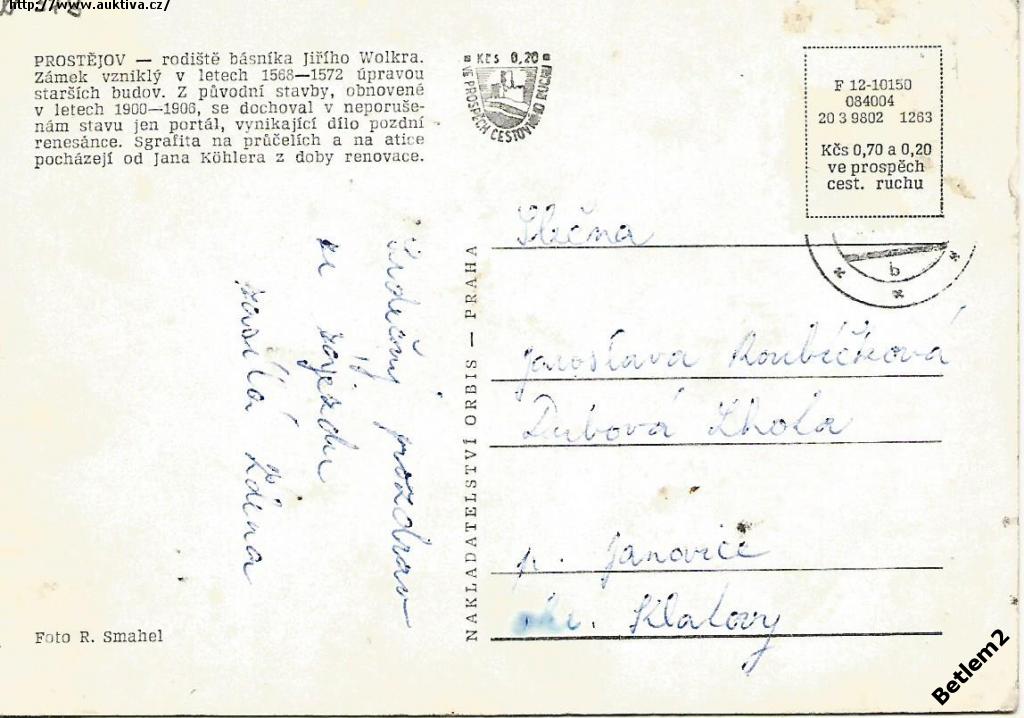 http://www.auktiva.cz/
PROSTĚJOV — rodiště básníka Jiřího Wolkra.
Zámek vzniklý v letech 1568—1572 úpravou
starších budov. Z původní stavby, obnovené
v letech 1900—1906, se dochoval v neporuše-
ném stavu jen portál, vynikající dílo pozdní
renesánce. Sgrafita na průčelích a na atice
pocházejí od Jana Köhlera z doby renovace.
Kčs 0,20
VE PROSPĚCH CESTOVNÍHO RUCHU
F 12-10150
084004
20 3 9802 1263
Kčs 0,70 a 0,20
ve prospěch
cest. ruchu
b
Srdečný pozdrav
ze zájezdu
zasílá Zdena
NAKLADATELSTVÍ ORBIS — PRAHA
Slečna
Jaroslava Roubíčková
Dubová Lhota
p. Janovice
okr. Klatovy
Foto R. Smahel
Betlem2